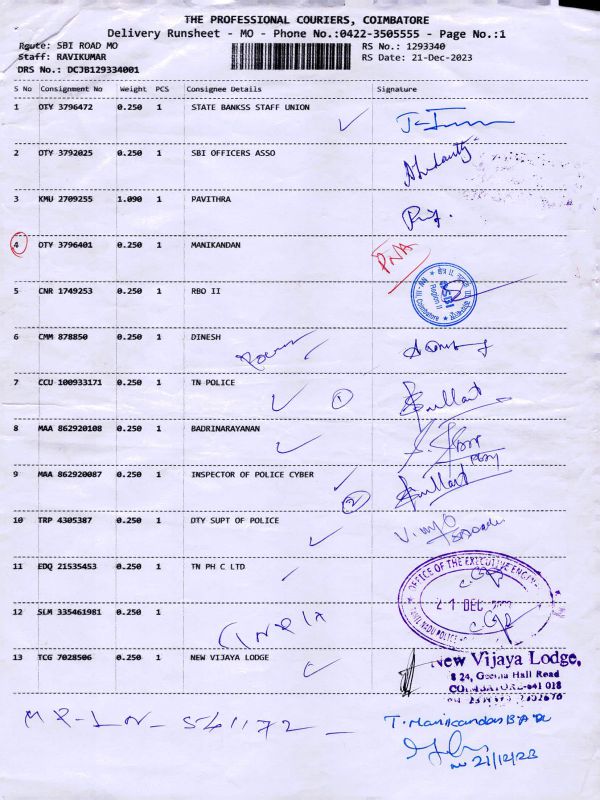 THE PROFESSIONAL COURIERS, COIMBATORE
Delivery Runsheet - MO - Phone No.:0422-3505555 - Page No.:1
Route: SBI ROAD MO
RS No.: 1293340
Staff: RAVIKUMAR
RS Date: 21-Dec-2023
DRS No.: DCJB129334001
S No Consignment No Weight PCS Consignee Details Signature
1 OTY 3796472 0.250 1 STATE BANKSS STAFF UNION
2 OTY 3792025 0.250 1 SBI OFFICERS ASSO
3 KMU 2709255 1.090 1 PAVITHRA
4 OTY 3796401 0.250 1 MANIKANDAN PNA
5 CNR 1749253 0.250 1 RBO II
Region II
Coimbatore
6 CMM 878850 0.250 1 DINESH
7 CCU 100933171 0.250 1 TN POLICE 1
8 MAA 862920108 0.250 1 BADRINARAYANAN
9 MAA 862920087 0.250 1 INSPECTOR OF POLICE CYBER
2
10 TRP 4305387 0.250 1 DTY SUPT OF POLICE
11 EDQ 21535453 0.250 1 TN PH C LTD
OFFICE OF THE EXECUTIVE ENGINEER
21 DEC
TAMIL NADU POLICE
12 SLM 335461981 0.250 1
13 TCG 7028506 0.250 1 NEW VIJAYA LODGE
New Vijaya Lodge,
8 24, Geetha Hall Road
COIMBATORE-641 018
T. Manikandan
21/12/23